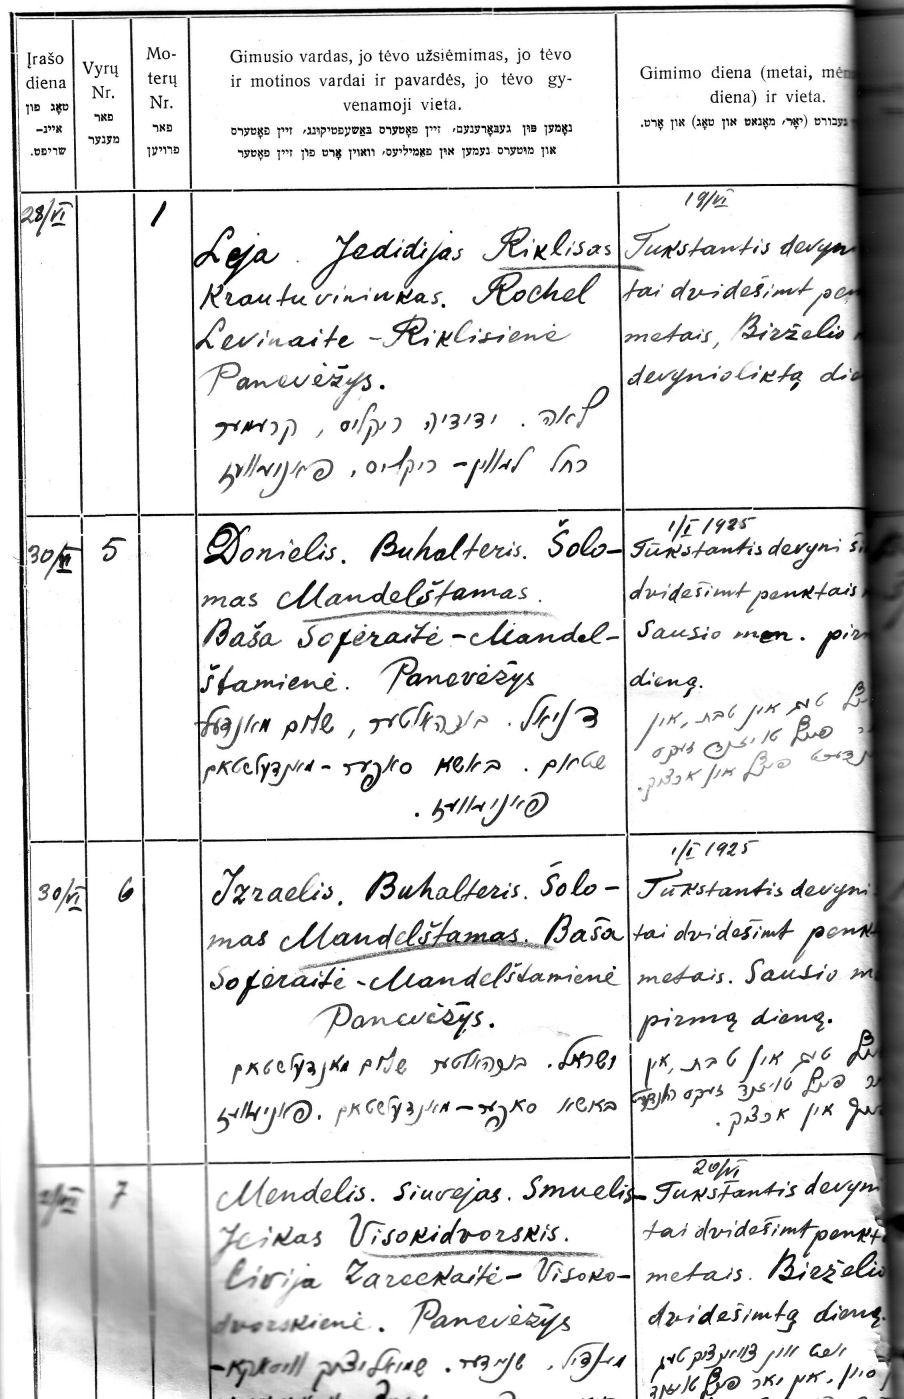 Įrašo
diena
טאָג פון
איינ-
שריפט.
Vyrų
Nr.
פאר
מענער
Mo-
terų
Nr.
פאר
פרויען
Gimusio vardas, jo tėvo užsiėmimas, jo tėvo
ir motinos vardai ir pavardės, jo tėvo gy-
venamoji vieta.
נאָמען פון געבאָרענעם, זיין פאָטערס באַשעפטיקונג, זיין פאָטערס
און מוטערס נעמען און פאַמיליעס, וואוין אָרט פון זיין פאָטער
Gimimo diena (metai, mėn
diena) ir vieta.
געבורט (יאָר, מאָנאט און טאָג) און אָרט.
28/VI
1
Leja . Jedidijas Riklisas
Krautuvininkas. Rochel
Levinaite - Riklisienė
Panevėžys.
לאה . ידידיה ריקליס, קרעמער
רחל לעווין - ריקליס, פאניוועז
19/VI
Tukstantis devyn
tai dvidešimt pen
metais, Birželio
devynioliktą die
30/VI
5
Donielis. Buhalteris. Šolo-
mas Mandelštamas.
Baša Soferaitė - Mandel-
štamienė. Panevėžys
דניאל. בוכהאלטער, שלום מאנדעל
שטאם . באשא סאפער - מאנדעלשטאם
פאניוועז.
1/I 1925
Tūkstantis devyni ši
dvidešimt penktais
Sausio men. pirm
dieną.
טאג אין טבת, אין
פינף טויזנד זעקס
הונדערט פינף און אכציק.
30/VI
6
Izraelis. Buhalteris. Šolo-
mas Mandelštamas. Baša
Soferaitė - Mandelštamienė
Panevėžys.
ישראל. בוכהאלטער שלום מאנדעלשטאם
באשא סאפער - מאנדעלשטאם. פאניוועז
1/I 1925
Tūkstantis devyni
tai dvidešimt penk
metais. Sausio m
pirmą dieną.
טאג אין טבת, אין
פינף טויזנד זעקס הונדערט
און אכציק.
7
Mendelis. Siuvėjas. Smuelis-
Jeikas Visokidvorskis.
Civija Zareckaitė - Visoko-
dvorskienė. Panevėžys
מענדיל. שניידער. שמואל
20/VI
Tukstantis devyni
tai dvidešimt penkt
metais. Birželio
dvidešimtą dieną.